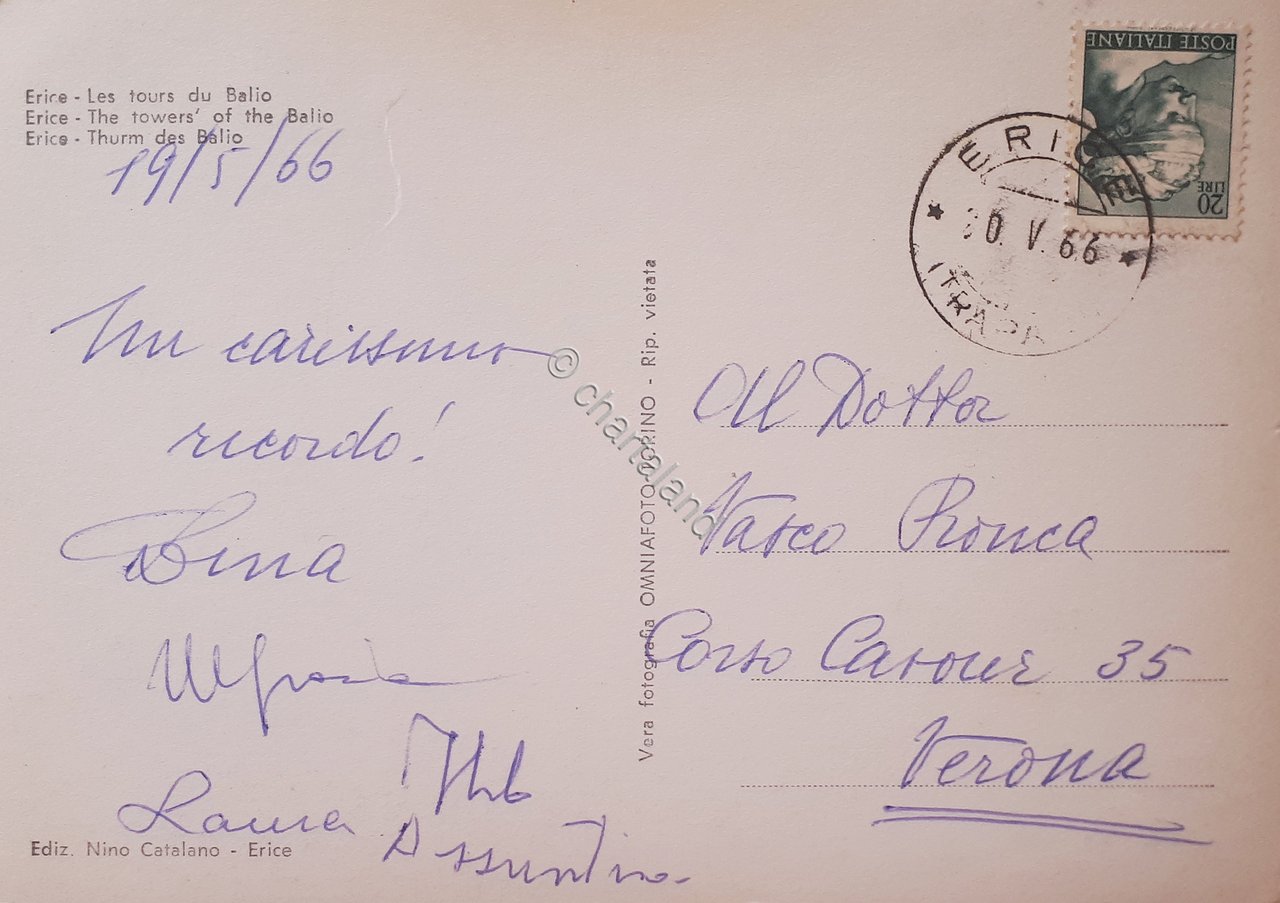 Erice - Les tours du Balio
Erice - The towers' of the Balio
Erice - Thurm des Balio
19/5/66
Un carissimo
ricordo!
Dina
Laura
Assuntina
Ediz. Nino Catalano - Erice
Vera fotografia OMNIAFOTO TORINO - Rip. vietata
© chartaland
POSTE ITALIANE
20
LIRE
ERICE
V. 66
(TRAPA
Al Dottor
Vasco Ronca
Corso Cavour 35
Verona